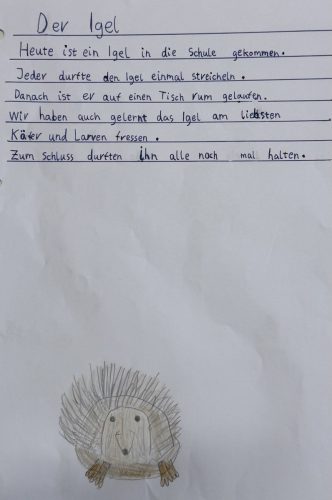 Der Igel
Heute ist ein Igel in die Schule gekommen.
Jeder durfte den Igel einmal streicheln.
Danach ist er auf einen Tisch rum gelaufen.
Wir haben auch gelernt das Igel am liebsten
Käfer und Larven fressen.
Zum Schluss durften ihn alle noch mal halten.